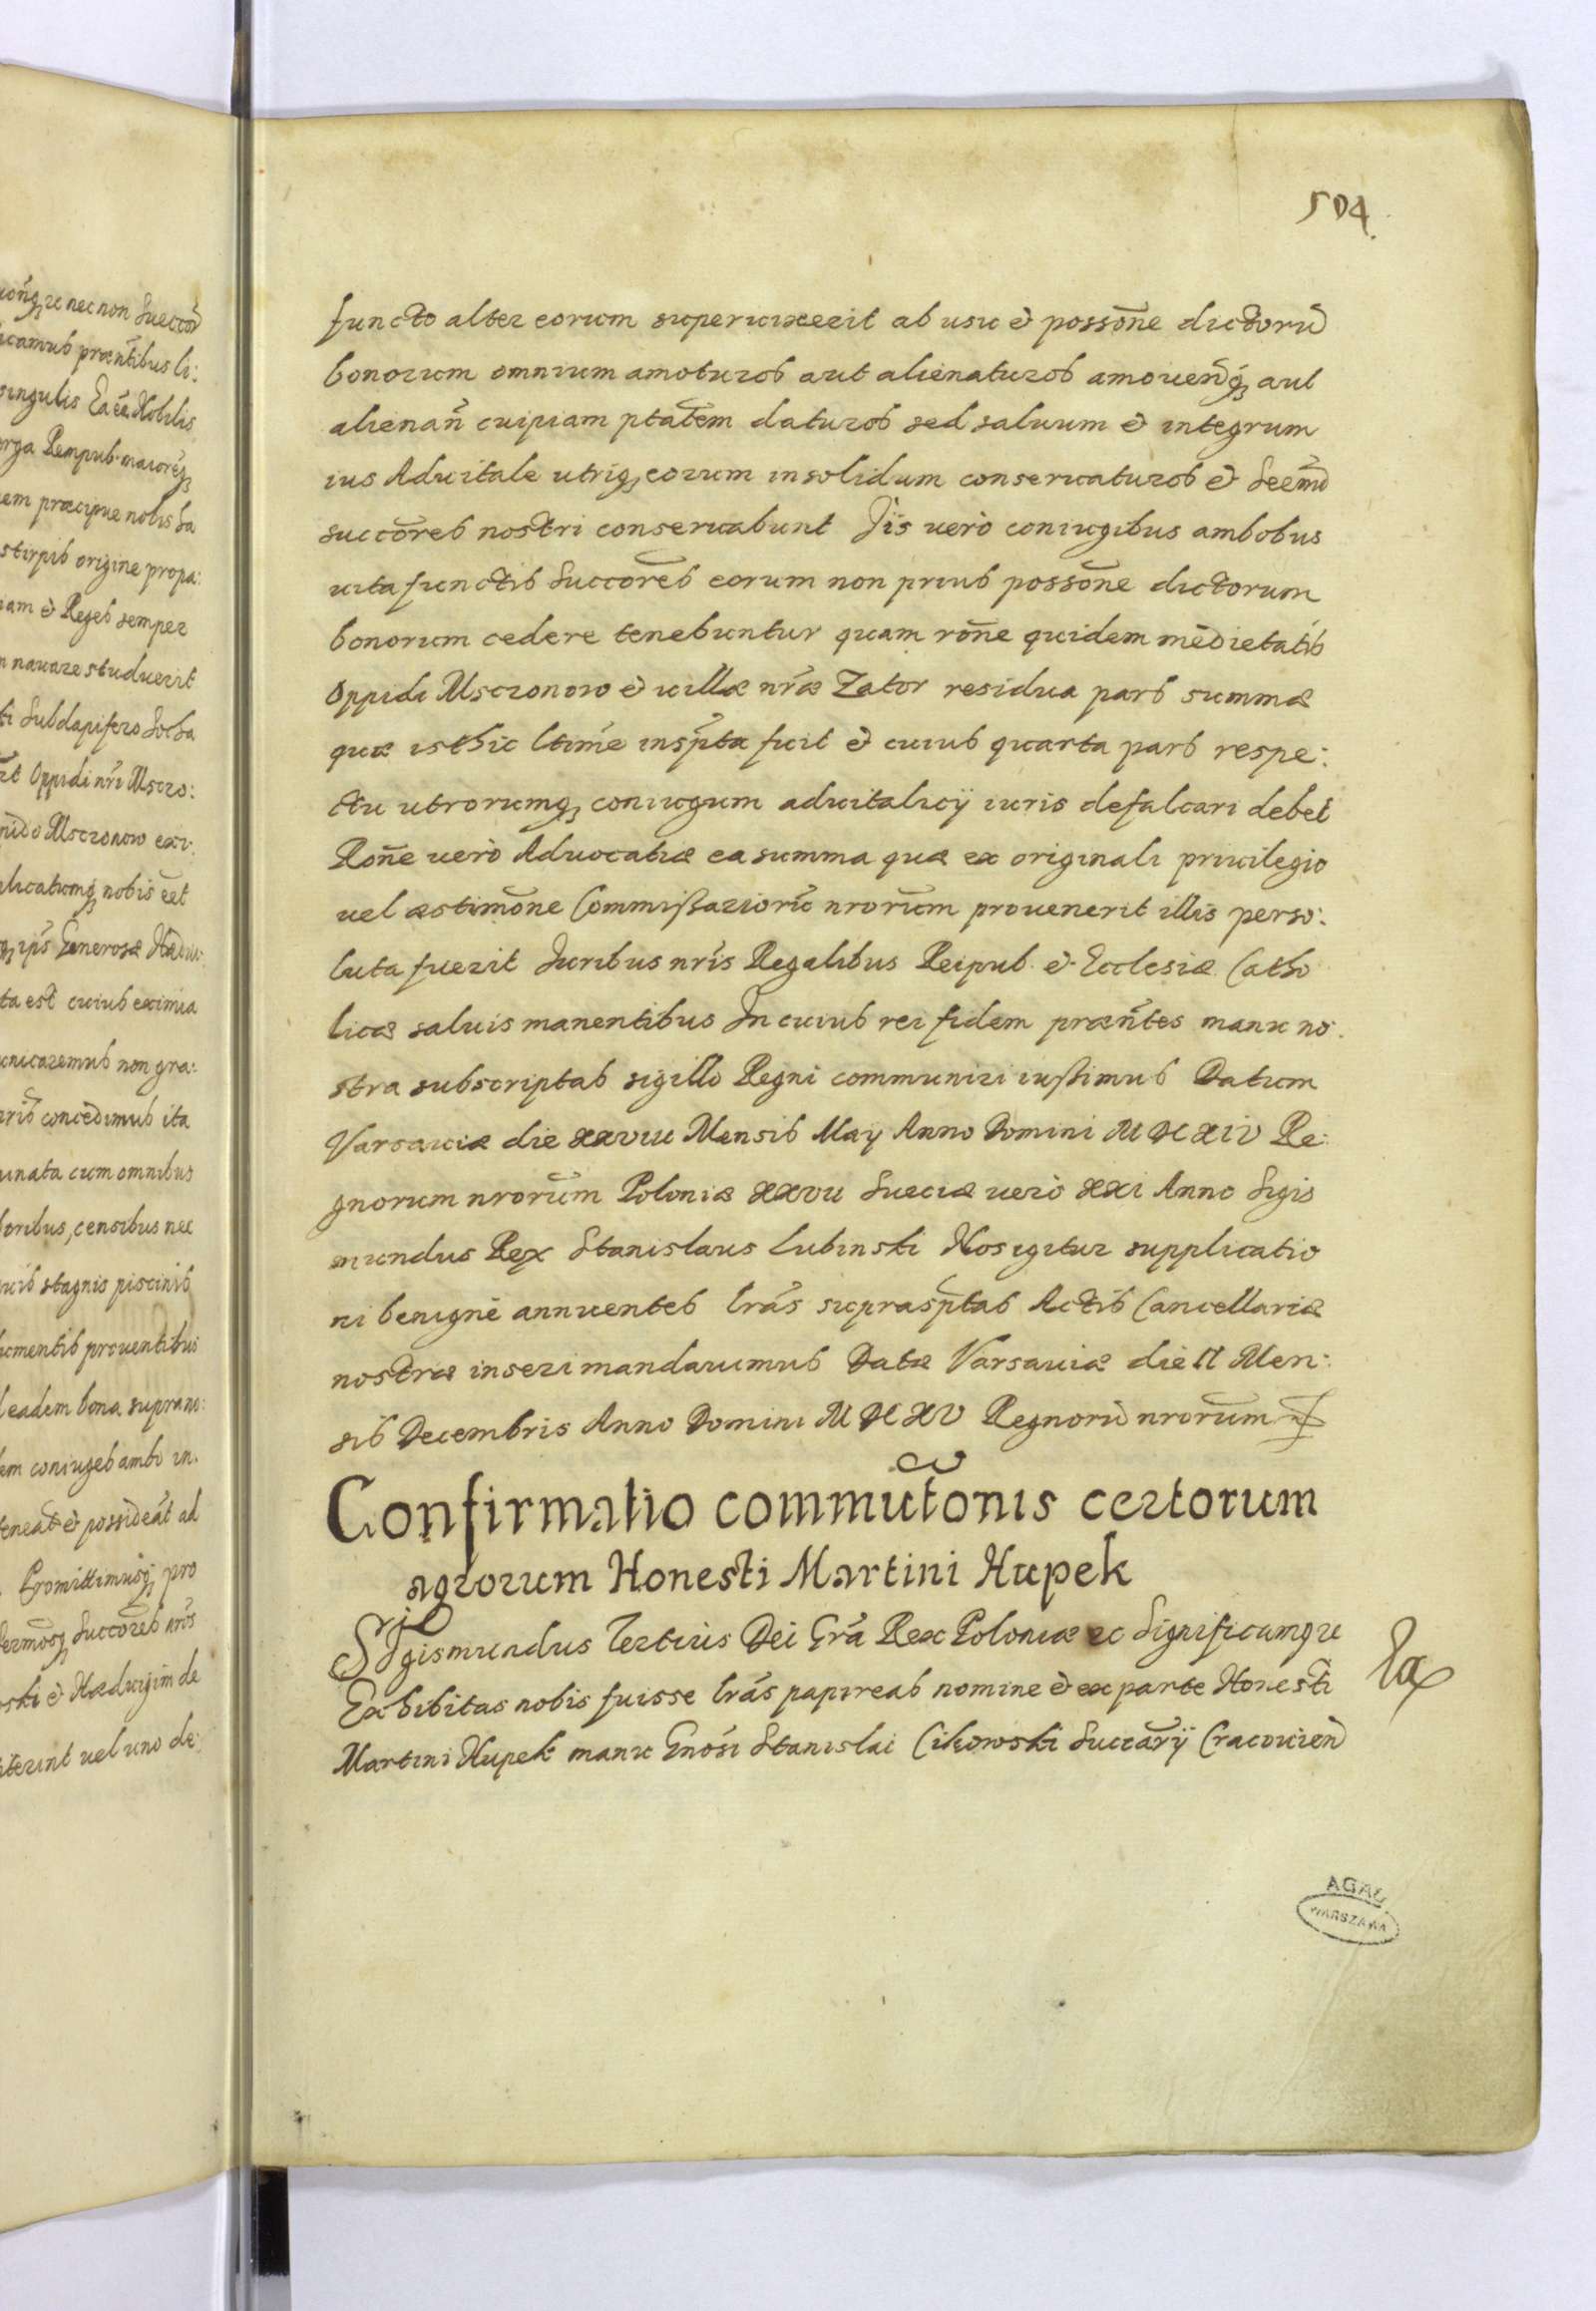 504.
functo alter eorum superuixerit ab usu et possõne dictorũ
bonorum omnium amoturos aut alienaturos amouendq́ʒ aut
alienañ cuipiam ptãtem daturos sed saluum et integrum
ius Aduitale utriqʒ eorum insolidum conseruaturos et Seemõ
succõres nostri conseruabunt Iis uerò coniugibus ambobus
uita functis Succõres eorum non prius possõne dictorum
bonorum cedere tenebuntur quam rõne quidem medietatis
Oppidi Mscżonow et uillæ nr̃æ Zator residua pars summæ
quæ isthic ltimé insp̃ta fuit et cuius quarta pars respe:
ctu utrorumqʒ coniugum aduitalicij iuris defalcari debet
Rõne uerò Aduocatiæ ea summa quæ ex originali priuilegio
uel æstimõne Commißariorũ nrorũm prouenerit illis perso:
luta fuerit Iuribus nr̃is Regalibus Reipub. et Ecclesiæ Catho
licæ saluis manentibus In cuius rei fidem præñtes manu no:
stra subscriptas sigillo Regni communiri iußimus Datum
Varsauiæ die xxviii Mensis Maij Anno Domini M DC XIV Re:
gnorum nrorũm Poloniæ xxvii Sueciæ uerò xxi Anno Sigis
mundus Rex Stanislaus Lubinski Nos igitur supplicatio
ni benignè annuentes lr̃as suprasp̃tas Actis Cancellariæ
nostræ inseri mandauimus Datæ Varsauiæ die II Men:
sis Decembris Anno Domini M DC XV Regnorũ nrorũm
Confirmatio commutõnis certorum
agrorum Honesti Martini Hupek
Sigismundus Tertius Dei Grã Rex Poloniæ ec Significamq ec
Exhibitas nobis fuisse lr̃as papireas nomine et ex parte Honesti
Martini Hupek manu Gnõsi Stanislai Cikowski Succãrij Cracouieñ
AGAD
WARSZAWA